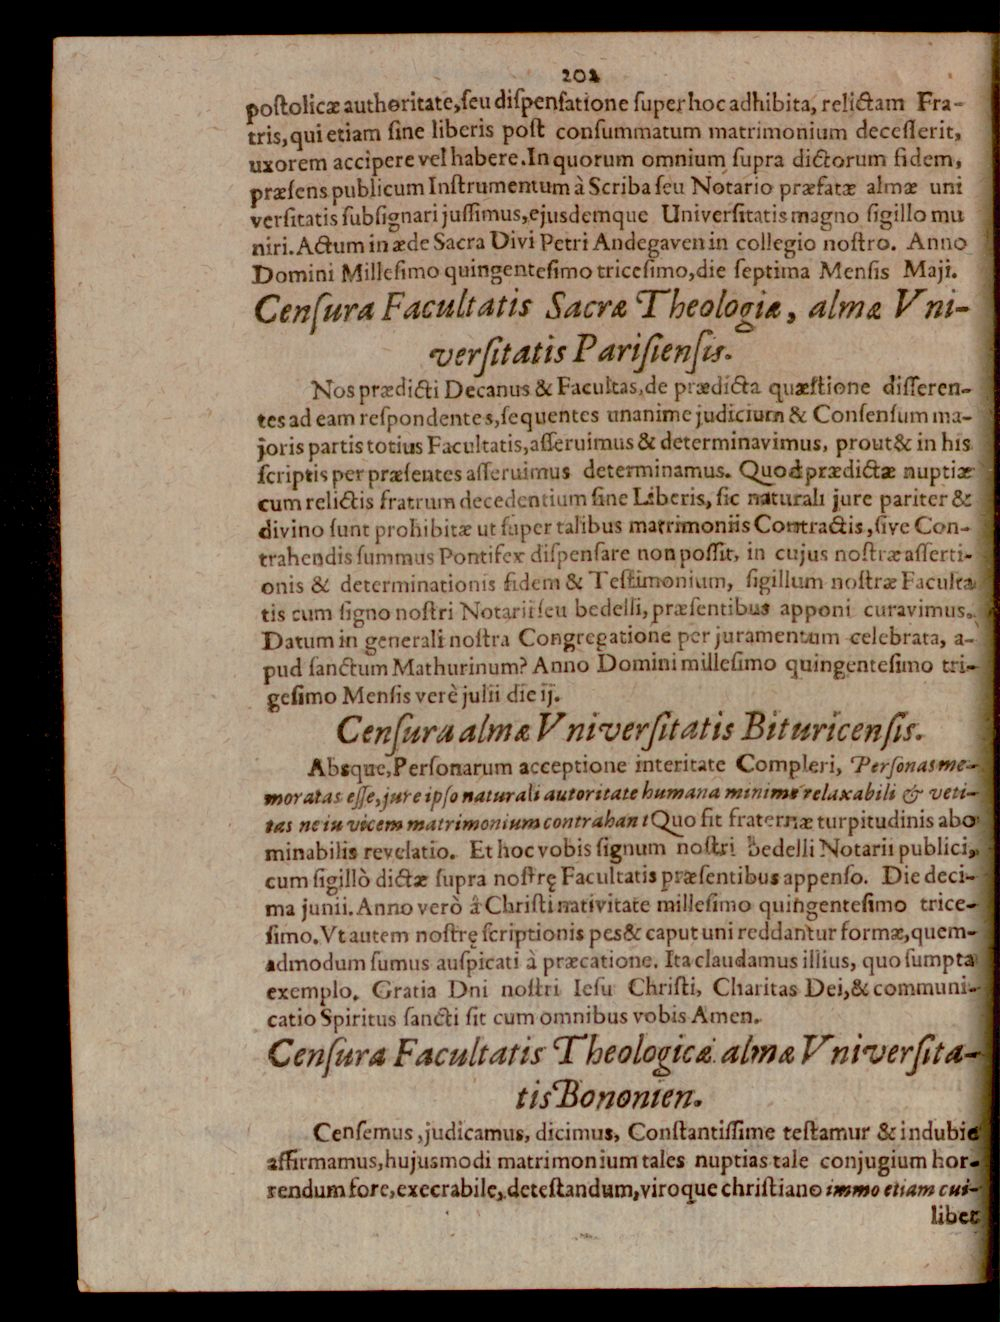 202
postolicæ authoritate,seu dispensatione super hoc adhibita, relictam Fra-
tris,qui etiam sine liberis post consummatum matrimonium decesserit,
uxorem accipere vel habere.In quorum omnium supra dictorum fidem,
præsens publicum Instrumentum à Scriba seu Notario præfatæ almæ uni
versitatis subsignari jussimus,ejusdemque Universitatis magno sigillo mu
niri.Actum in æde Sacra Divi Petri Andegaven in collegio nostro. Anno
Domini Millesimo quingentesimo tricesimo,die septima Mensis Maji.
Censura Facultatis Sacræ Theologiæ, almæ Vni-
versitatis Parisiensis.
Nos prædicti Decanus & Facultas,de prædicta quæstione differen-
tes ad eam respondentes,sequentes unanime judicium & Consensum ma-
joris partis totius Facultatis,asseruimus & determinavimus, prout & in his
scriptis per præsentes asseruimus determinamus. Quod prædictæ nuptiæ
cum relictis fratrum decedentium sine Liberis, sic naturali jure pariter &
divino sunt prohibitæ ut super talibus matrimoniis Contractis,sive Con-
trahendis summus Pontifex dispensare non possit, in cujus nostræ asserti-
onis & determinationis fidem & Testimonium, sigillum nostræ Faculta
tis cum signo nostri Notarii seu bedelli,præsentibus apponi curavimus.
Datum in generali nostra Congregatione per juramentum celebrata, a-
pud sanctum Mathurinum? Anno Domini millesimo quingentesimo tri-
gesimo Mensis verè julii die ij.
Censura almæ Vniversitatis Bituricensis.
Absque,Personarum acceptione interitate Compleri, Personas me-
moratas esse,jure ipso naturali autoritate humana minime relaxabili & veti-
tas ne in vicem matrimonium contrahant Quo fit fraternæ turpitudinis abo
minabilis revelatio. Et hoc vobis signum nostri bedelli Notarii publici,
cum sigillò dictæ supra nostrę Facultatis præsentibus appenso. Die deci-
ma junii.Anno verò â Christi nativitate millesimo quingentesimo trice-
simo.Vt autem nostrę scriptionis pes & caput uni reddantur formæ,quem-
admodum sumus auspicati à præcatione. Ita claudamus illius, quo sumpta
exemplo. Gratia Dni nostri Iesu Christi, Charitas Dei,& communi-
catio Spiritus sancti sit cum omnibus vobis Amen.
Censura Facultatis Theologicæ almæ Vniversita-
tis Bononien.
Censemus,judicamus, dicimus, Constantissime testamur & indubie
affirmamus,hujusmodi matrimonium tales nuptias tale conjugium hor-
rendum fore,execrabile,detestandum,viroque christiano immo etiam cui-
libet